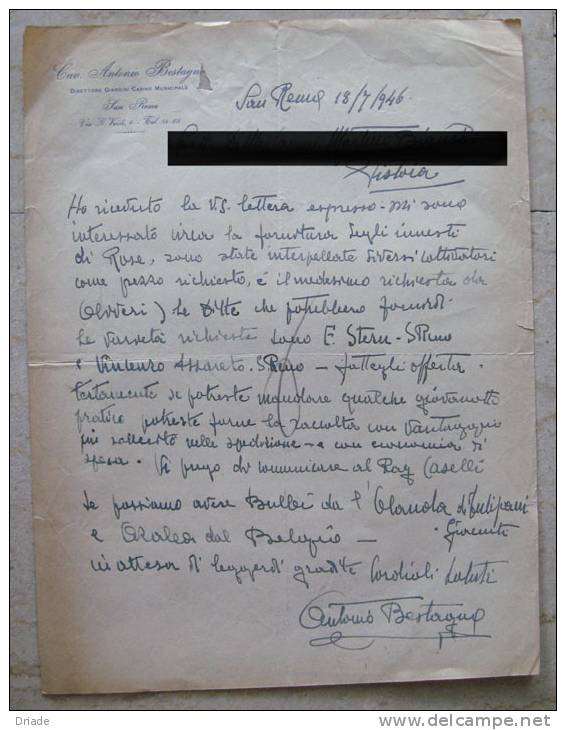 Cav. Antonio Bestagno
Direttore Giardini Casino Municipale
San Remo
San Remo 18/7/946
Pistoia
Ho ricevuto la VS. lettera espresso - mi sono
interessato circa la fornitura degli innesti
di Rose, sono state interpellate diversi coltivatori
come pezzo richiesto, é il medesimo richiesto da
(Olivieri) le Ditte che potrebbero fornirli
le varietà richieste sono E. Stern - S Remo
e Vincenzo Assareto. S Remo - fattegli offerta.
se potreste mandare qualche giovanotto
pratico potreste farne la raccolta con vantaggio
più nelle spedizione - e con economia di
spesa. Vi prego di comunicare al Rag Caselli
se possiamo avere Bulbi da l'Olanda di Tulipani
e Azalea dal Belgio - Giacinti
in attesa di leggerdi gradite Cordiali Saluti
Antonio Bestagno
Driade
www.delcampe.net